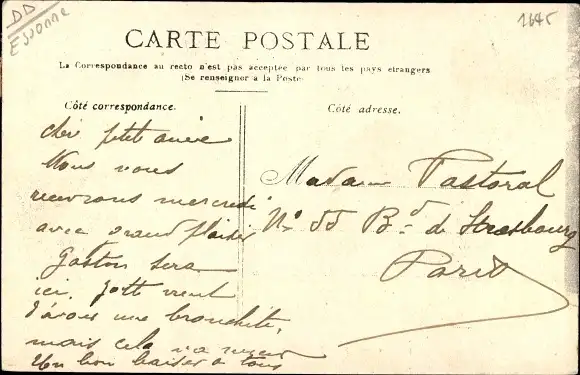 DD
Essonne
1645
CARTE POSTALE
La Correspondance au recto n'est pas acceptée par tous les pays étrangers
(Se renseigner à la Poste)
Côté correspondance.
Chère petite amie
Nous vous
recevrons mercredi
avec grand plaisir
Gaston sera
ici. Jott vient
d'avoir une bronchite,
mais cela va mieux
Un bon baiser à tous
Côté adresse.
Madame Pastoral
N° 55 Bd de Strasbourg
Paris